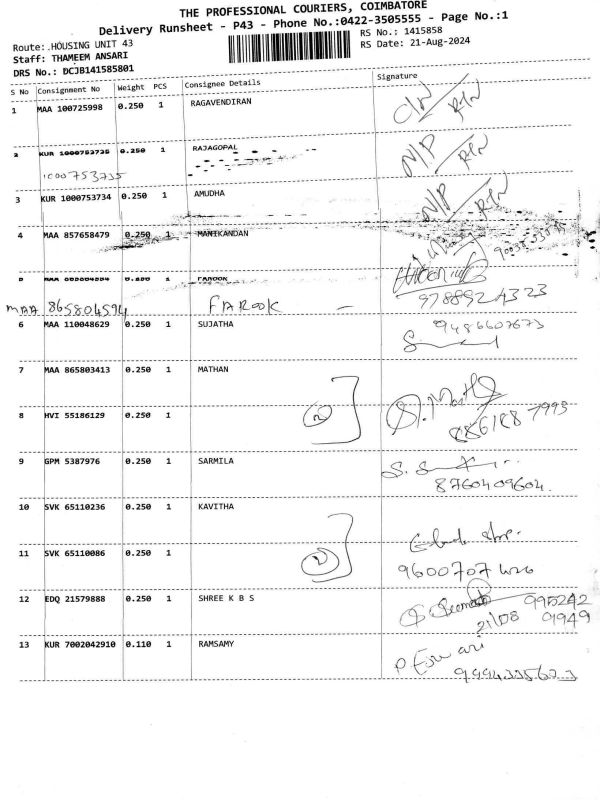 THE PROFESSIONAL COURIERS, COIMBATORE
Delivery Runsheet - P43 - Phone No.:0422-3505555 - Page No.:1
Route: .HOUSING UNIT 43
RS No.: 1415858
Staff: THAMEEM ANSARI
RS Date: 21-Aug-2024
DRS No.: DCJB141585801
S No Consignment No Weight PCS Consignee Details Signature
1 MAA 100725998 0.250 1 RAGAVENDIRAN
RTN
2 KUR 1000753735 0.250 1 RAJAGOPAL N/P RTN
1000753735
3 KUR 1000753734 0.250 1 AMUDHA N/P RTN
4 MAA 857658479 0.250 1 MANIKANDAN
5 MAA 865804594 0.250 1 FAROOK
MAA 865804594 FAROOK - 9788924323
6 MAA 110048629 0.250 1 SUJATHA 9486607673
7 MAA 865803413 0.250 1 MATHAN
8 HVI 55186129 0.250 1
9 GPM 5387976 0.250 1 SARMILA
8760409604.
10 SVK 65110236 0.250 1 KAVITHA
11 SVK 65110086 0.250 1
12 EDQ 21579888 0.250 1 SHREE K B S 995242
21/08 91949
13 KUR 7002042910 0.110 1 RAMSAMY P. Eswari